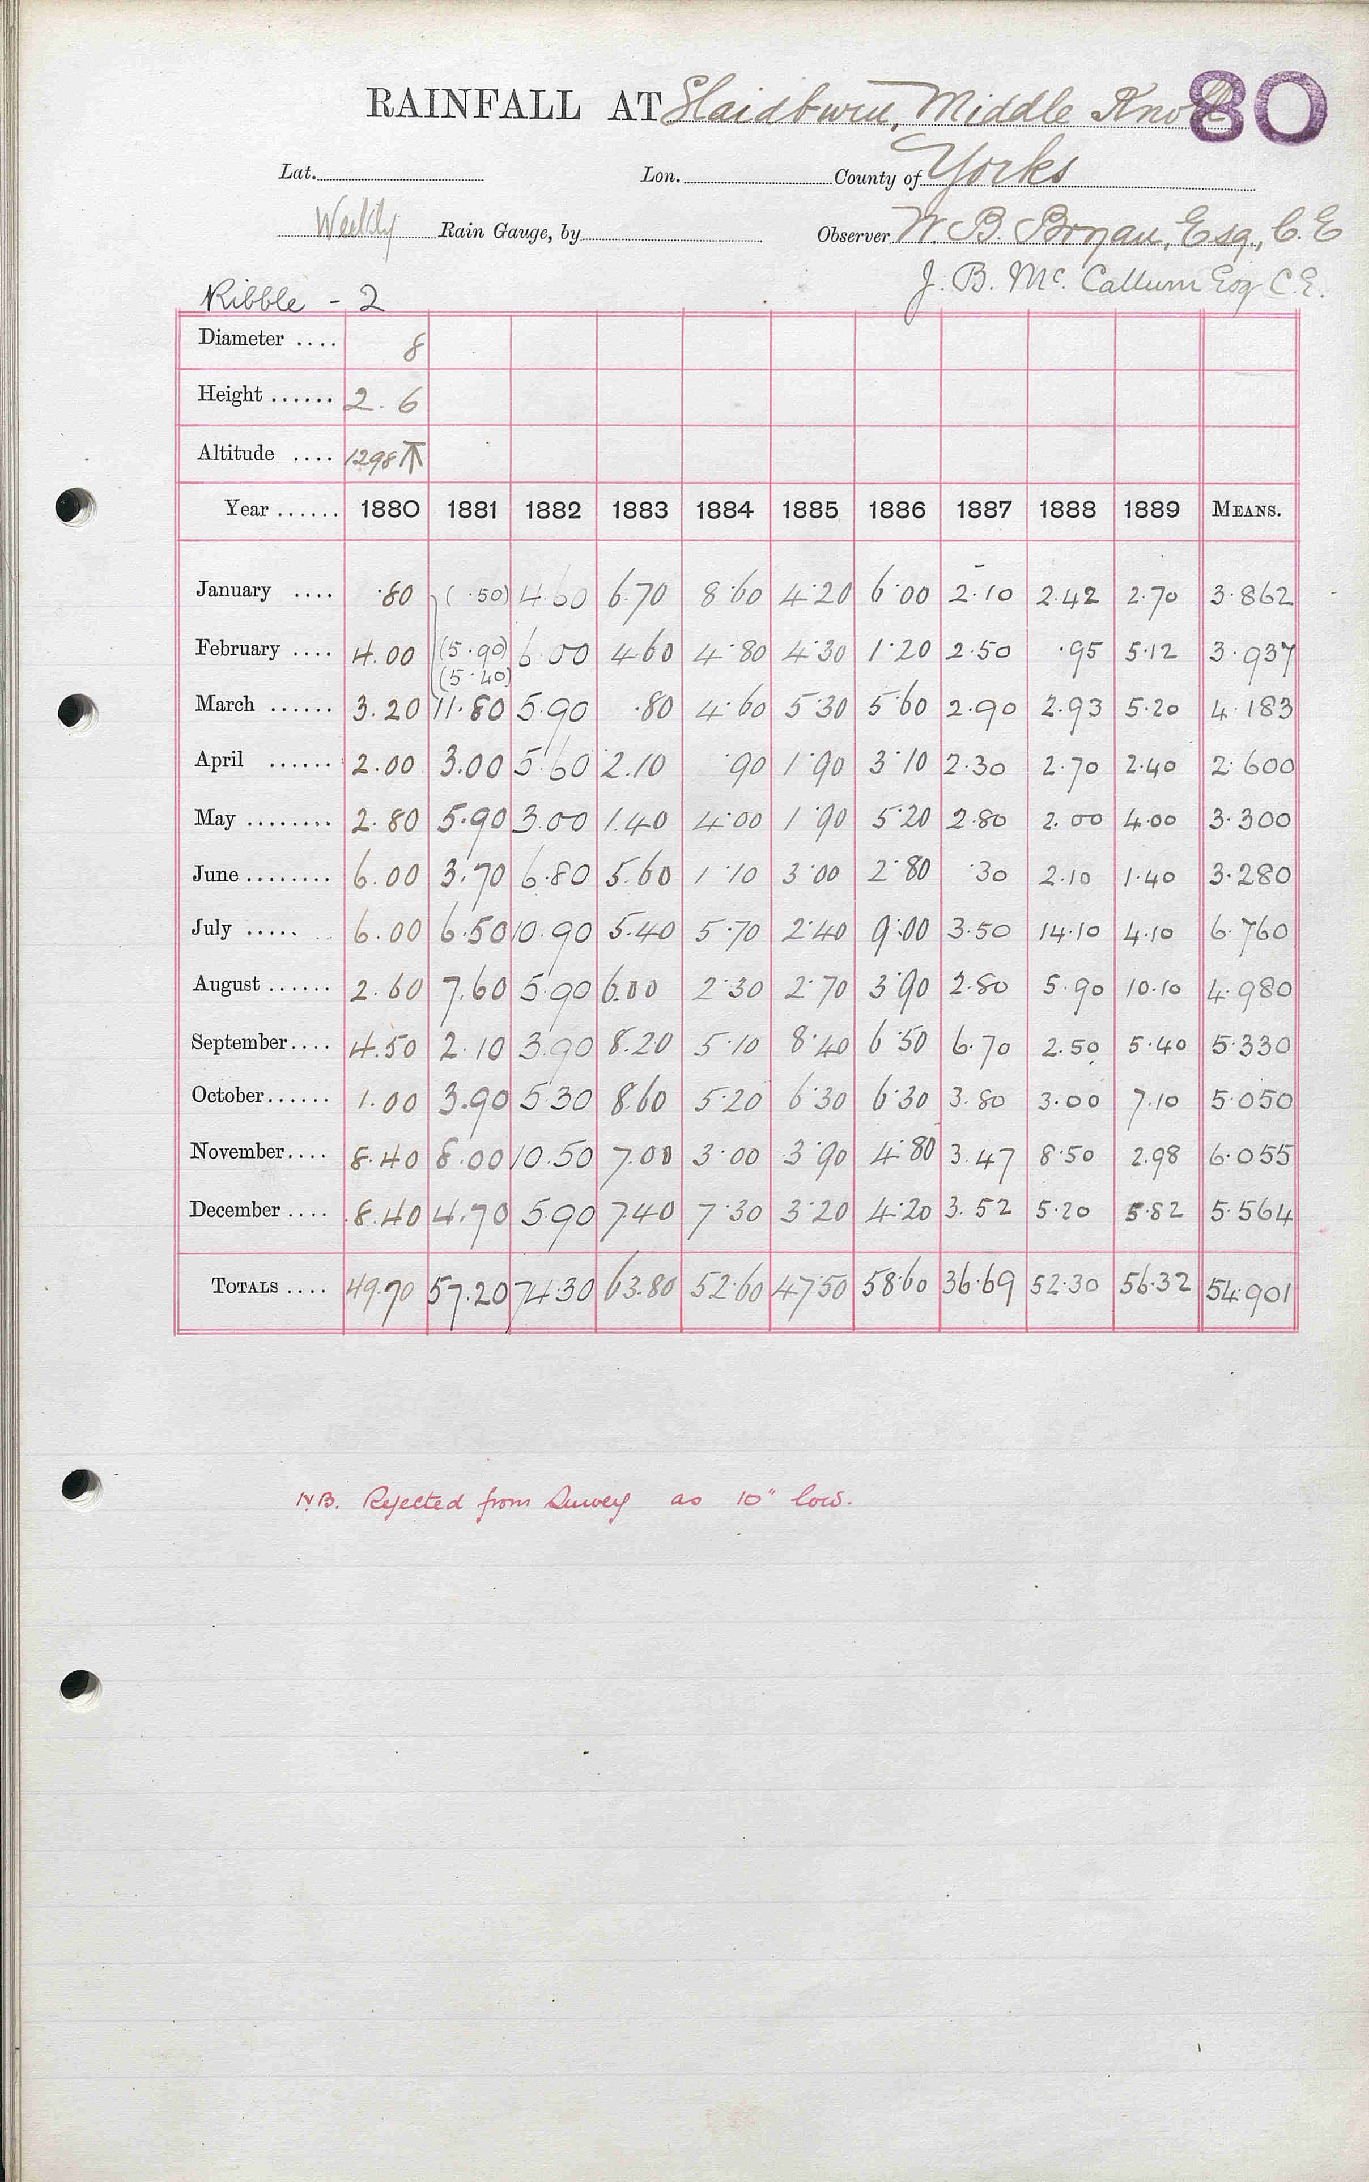 80
RAINFALL AT Slaidburn, Middle Knoll
Lat. Lon. County of Yorks
Weekly Rain Gauge, by Observer W. B. Bryan, Esq., C.E
J. B. Mc. Callum Esq C.E.
Ribble - 2
Diameter .... 8
Height ...... 2.6
Altitude .... 1298
Year ...... 1880 1881 1882 1883 1884 1885 1886 1887 1888 1889 MEANS.
January .... .80 (.50) 4.60 6.70 8.60 4.20 6.00 2.10 2.42 2.70 3.862
February .... 4.00 (5.90) 6.00 4.60 4.80 4.30 1.20 2.50 .95 5.12 3.937
(5.40)
March ...... 3.20 11.80 5.90 .80 4.60 5.30 5.60 2.90 2.93 5.20 4.183
April ...... 2.00 3.00 5.60 2.10 .90 1.90 3.10 2.30 2.70 2.40 2.600
May ........ 2.80 5.90 3.00 1.40 4.00 1.90 5.20 2.80 2.00 4.00 3.300
June ........ 6.00 3.70 6.80 5.60 1.10 3.00 2.80 .30 2.10 1.40 3.280
July ..... 6.00 6.50 10.90 5.40 5.70 2.40 9.00 3.50 14.10 4.10 6.760
August ...... 2.60 7.60 5.90 6.00 2.30 2.70 3.90 2.80 5.90 10.10 4.980
September.... 4.50 2.10 3.90 8.20 5.10 8.40 6.50 6.70 2.50 5.40 5.330
October...... 1.00 3.90 5.30 8.60 5.20 6.30 6.30 3.80 3.00 7.10 5.050
November.... 8.40 8.00 10.50 7.00 3.00 3.90 4.80 3.47 8.50 2.98 6.055
December .... 8.40 4.70 5.90 7.40 7.30 3.20 4.20 3.52 5.20 5.82 5.564
TOTALS .... 49.70 57.20 74.30 63.80 52.60 47.50 58.60 36.69 52.30 56.32 54.901
N.B. Rejected from Survey as 10" low.